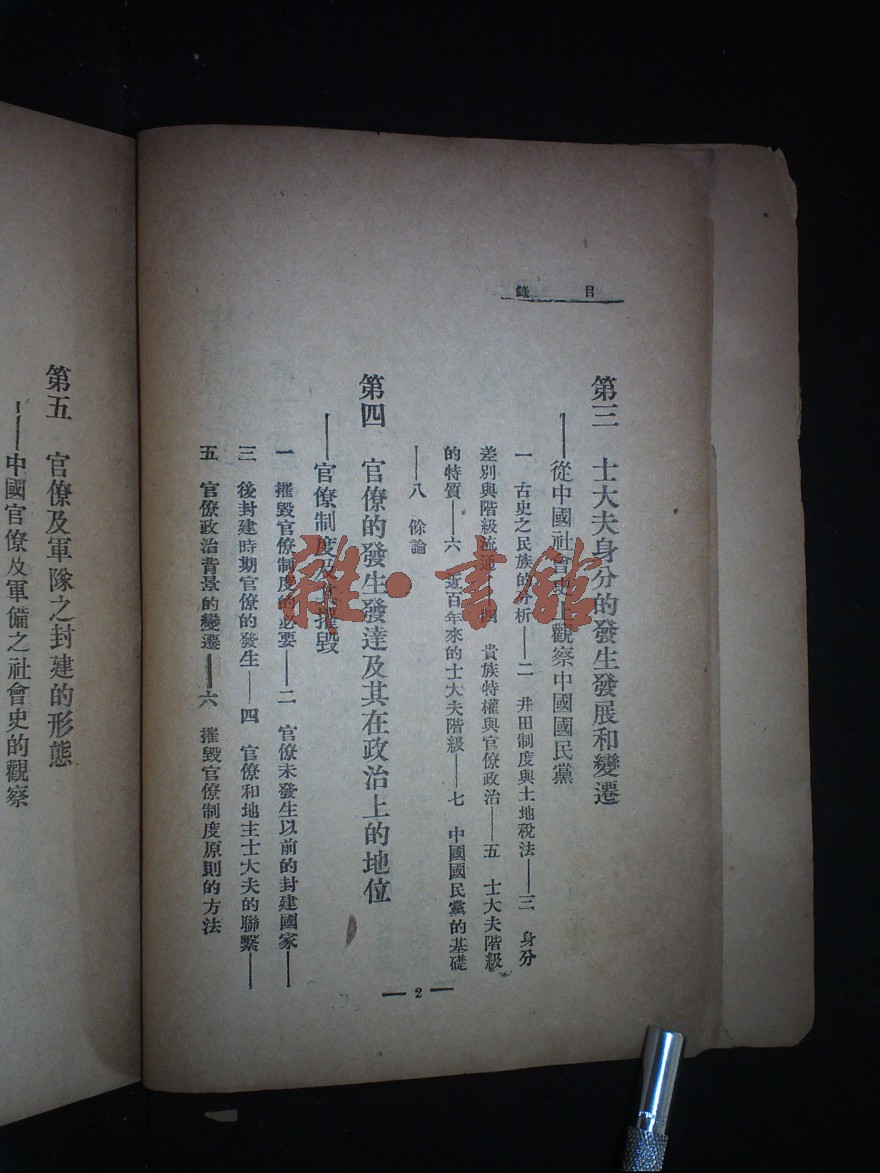 目錄
第三 士大夫身分的發生發展和變遷
——從中國社會史上觀察中國國民黨
一 古史之民族的分析——二 井田制度與土地稅法——三 身分
差別與階級流通——四 貴族特權與官僚政治——五 士大夫階級
的特質——六 近百年來的士大夫階級——七 中國國民黨的基礎
——八 餘論
第四 官僚的發生發達及其在政治上的地位
——官僚制度及其摧毀
一 摧毀官僚制度的必要——二 官僚未發生以前的封建國家——
三 後封建時期官僚的發生——四 官僚和地主士大夫的聯繫——
五 官僚政治背景的變遷——六 摧毀官僚制度原則的方法
— 2 —
第五 官僚及軍隊之封建的形態
——中國官僚及軍備之社會史的觀察
雜·書館